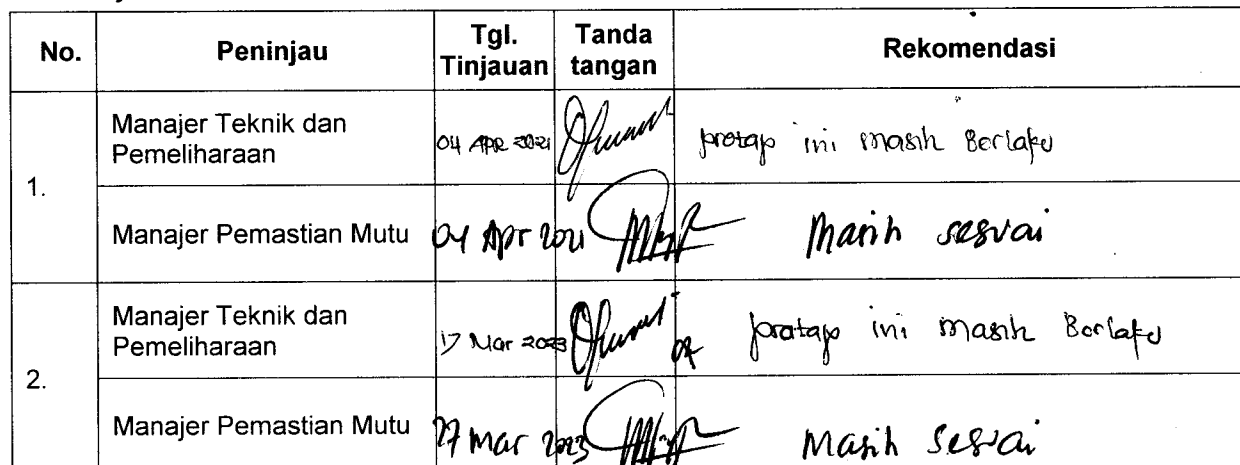 No. Peninjau Tgl. Tinjauan Tanda tangan Rekomendasi
1. Manajer Teknik dan Pemeliharaan 04 APR 2021 protap ini masih Berlaku
Manajer Pemastian Mutu 04 Apr 2021 Masih sesuai
2. Manajer Teknik dan Pemeliharaan 17 Mar 2023 protap ini masih Berlaku
Manajer Pemastian Mutu 27 Mar 2023 Masih sesuai